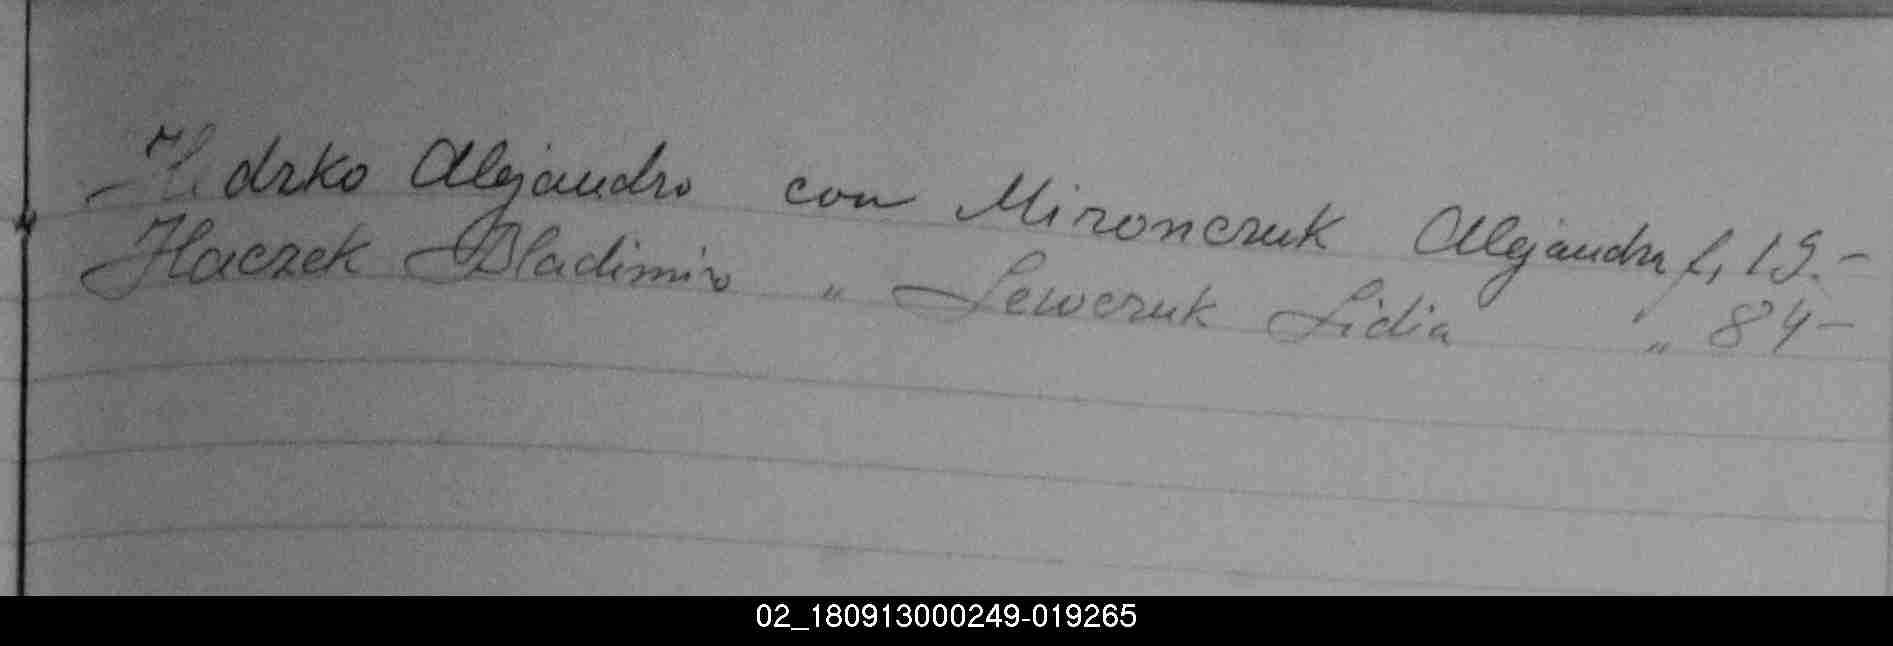 Alejandro con Mironczuk Alejandra f, 19.-
Haczek Bladimiro " Sewczuk Lidia " 84-
02_180913000249-019265